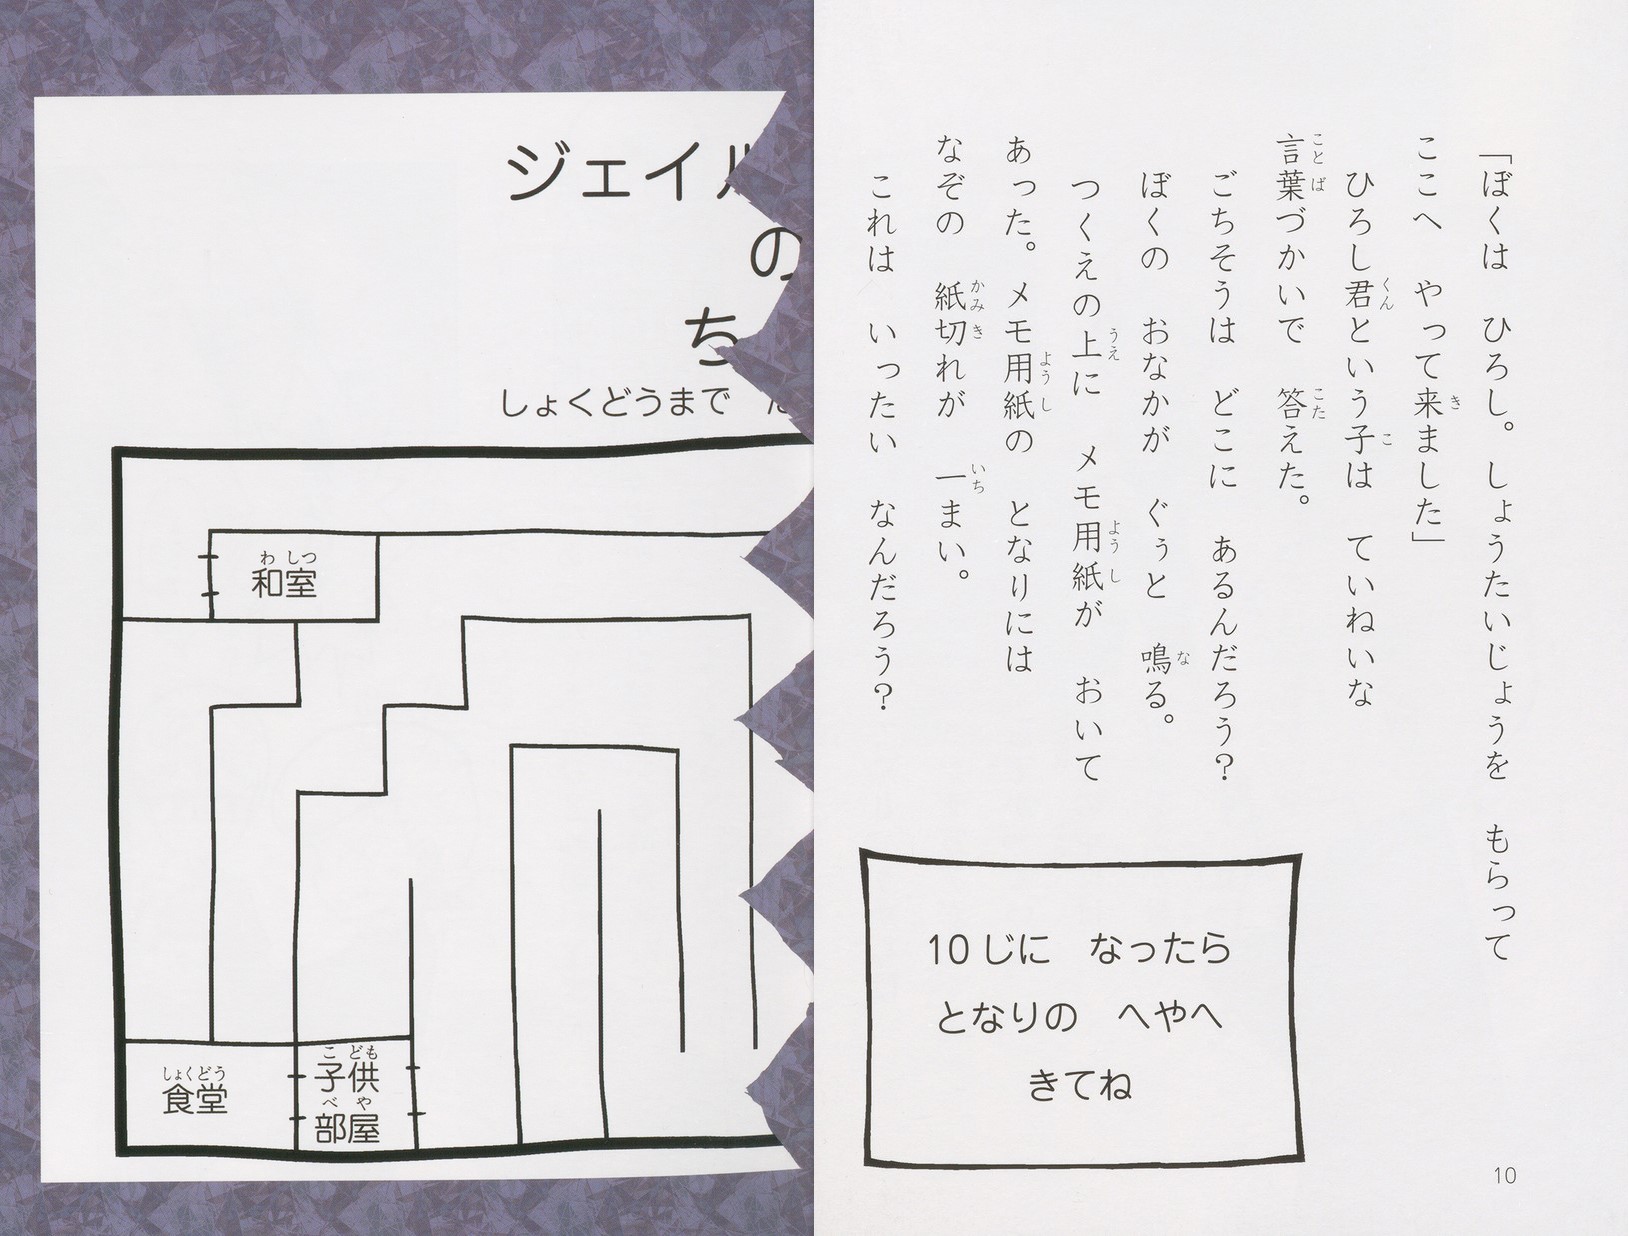 「ぼくは　ひろし。しょうたいじょうを　もらって
ここへ　やって来ました」
ひろし君という子は　ていねいな
言葉づかいで　答えた。
ごちそうは　どこに　あるんだろう？
ぼくの　おなかが　ぐぅと　鳴る。
つくえの上に　メモ用紙が　おいて
あった。メモ用紙の　となりには
なぞの　紙切れが　一まい。
これは　いったい　なんだろう？
10じに　なったら
となりの　へやへ
きてね
10
ジェイル
の
ち
しょくどうまで
和室
食堂
子供
部屋